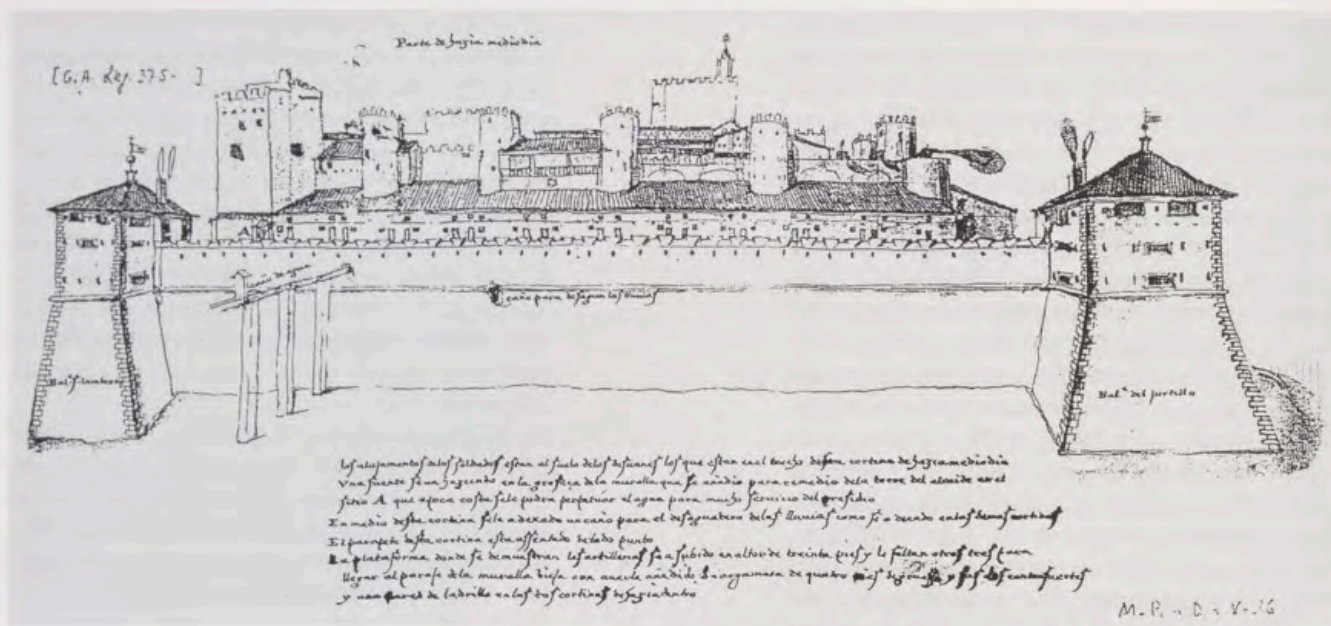 Parte de hazia mediodia
[G.A. Leg. 375- ]
A
caño para desaguar las lluuias
Bal.te
Bal.te del portillo
los alojamentos de los soldados estan al suelo de los desuanes los que estan en el trecho desta cortina de hazia mediodia
Vna fuente se ua haziendo en la groseça de la muralla que se añadio para remedio de la torre del alcaide en el
sitio A que a poca costa se le podra perpetuar el agua para mucho seruicio del presidio
En medio desta cortina se le a dexado un caño para el desaguadero de las lluuias como se a dexado en las demas cortinas
El parapeto desta cortina esta assentado de todo punto
La plataforma donde se demuestran las artillerias se a subido en altor de treinta pies y le faltan otros tres para
llegar al paraje de la muralla bieja con auerle añadido de quatro pies de y sus dos contrafuertes
y una pared de ladrillo en las dos cortinas de hazia dentro
M. P. - D. - V-26